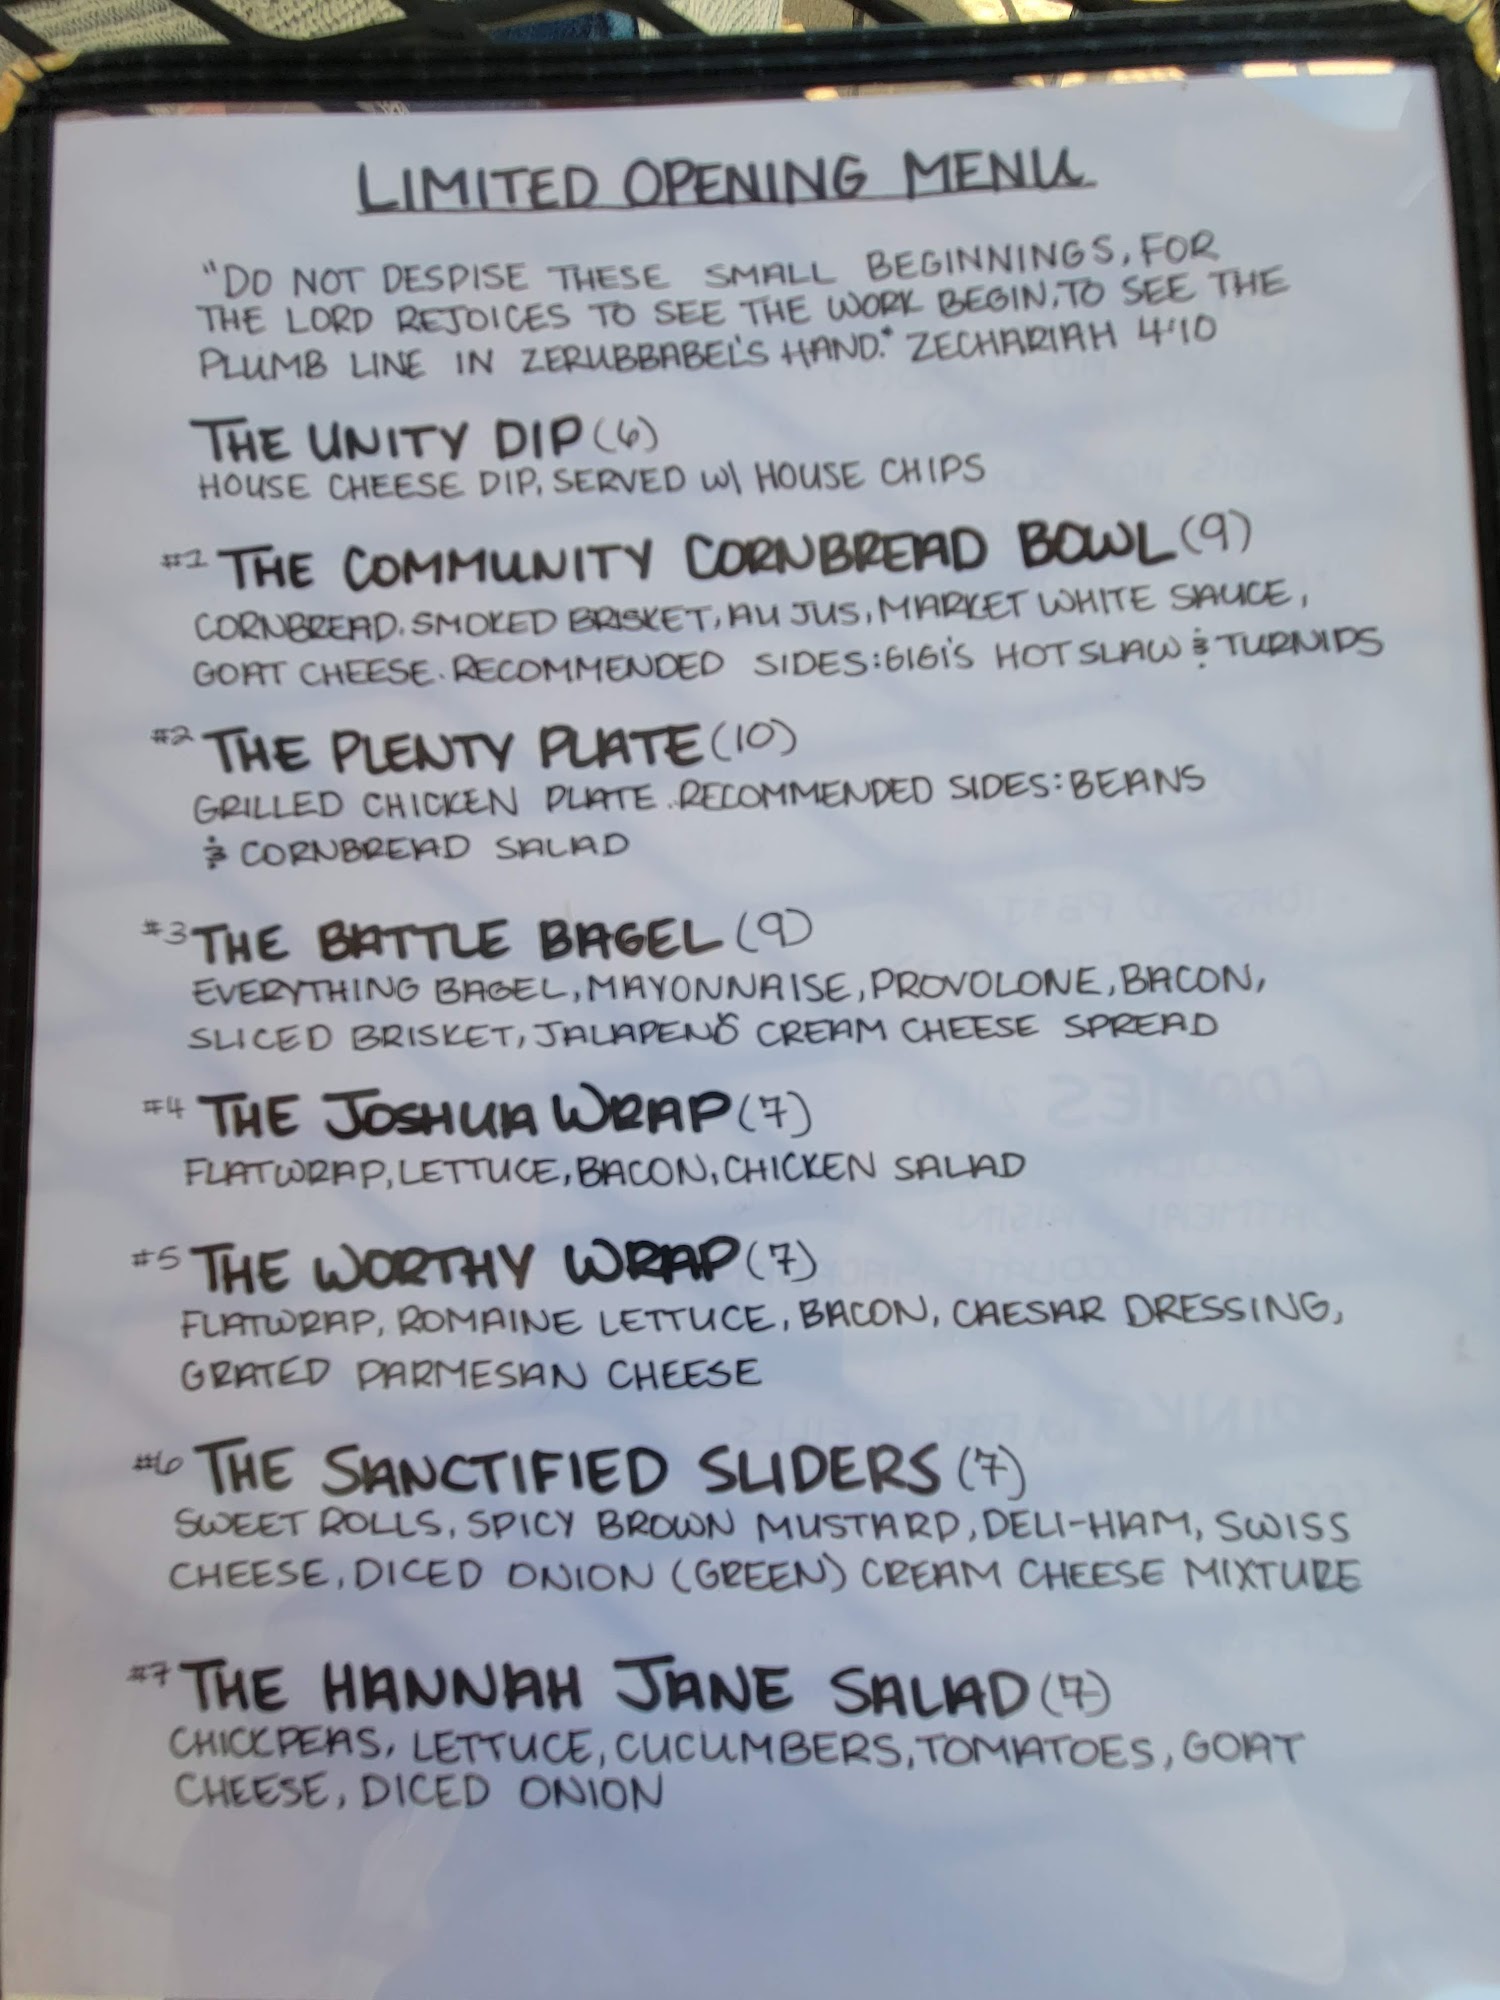 LIMITED OPENING MENU
"DO NOT DESPISE THESE SMALL BEGINNINGS, FOR
THE LORD REJOICES TO SEE THE WORK BEGIN, TO SEE THE
PLUMB LINE IN ZERUBBABEL'S HAND." ZECHARIAH 4:10
THE UNITY DIP (6)
HOUSE CHEESE DIP, SERVED W\ HOUSE CHIPS
#1 THE COMMUNITY CORNBREAD BOWL (9)
CORNBREAD, SMOKED BRISKET, AU JUS, MARKET WHITE SAUCE,
GOAT CHEESE. RECOMMENDED SIDES: GIGI'S HOT SLAW & TURNIPS
#2 THE PLENTY PLATE (10)
GRILLED CHICKEN PLATE. RECOMMENDED SIDES: BEANS
& CORNBREAD SALAD
#3 THE BATTLE BAGEL (9)
EVERYTHING BAGEL, MAYONNAISE, PROVOLONE, BACON,
SLICED BRISKET, JALAPENŎ CREAM CHEESE SPREAD
#4 THE JOSHUA WRAP (7)
FLATWRAP, LETTUCE, BACON, CHICKEN SALAD
#5 THE WORTHY WRAP (7)
FLATWRAP, ROMAINE LETTUCE, BACON, CAESAR DRESSING,
GRATED PARMESAN CHEESE
#6 THE SANCTIFIED SLIDERS (7)
SWEET ROLLS, SPICY BROWN MUSTARD, DELI-HAM, SWISS
CHEESE, DICED ONION (GREEN) CREAM CHEESE MIXTURE
#7 THE HANNAH JANE SALAD (7)
CHICKPEAS, LETTUCE, CUCUMBERS, TOMATOES, GOAT
CHEESE, DICED ONION